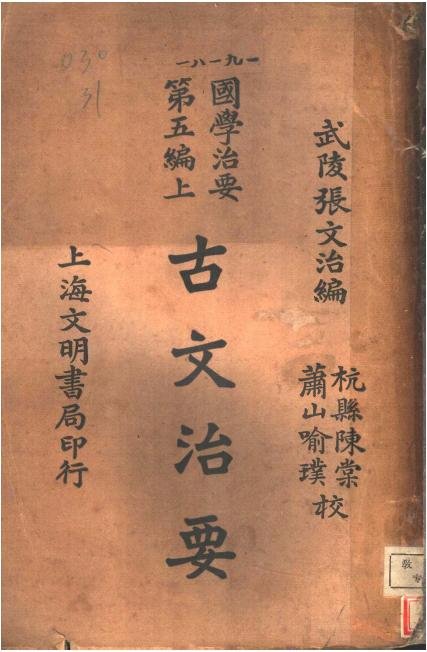 武陵張文治編
杭縣陳棠
蕭山喻璞 校
一八一九一
國學治要
第五編上
古文治要
上海文明書局印行
030
31
敎